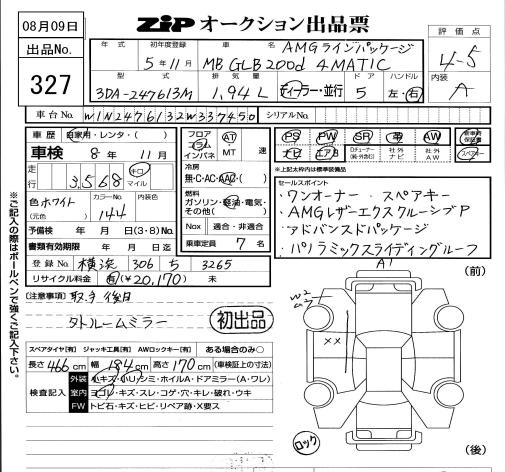 08月09日
ZIP オークション出品票
出品No.
327
評価点
4-5
内装
A
年式 初年度登録 車名
5年11月 MB GLB200d 4MATIC
AMGラインパッケージ
型式 排気量 ドア ハンドル
3DA-247613M 1,94L ディーラー・並行 5 左・右
車台No. W1N2476132W337450 シリアルNo.
車歴 自家用・レンタ・( )
車検 8年 11月
走行 3,568 キロ マイル
色 ホワイト (元色) カラーNo. 144 内装色
予備検 年 月 日(3・8)No.
書類有効期限 年 月 日迄
登録No. 横浜 306 ち 3265
リサイクル料金 有(¥20,170) 未
フロア コラム インパネ AT MT 速
冷房 無・C・AC・AAC・( )
燃料 ガソリン・軽油・電気・その他( )
Nox 適合・非適合
乗車定員 7名
PS PW SR 革 AW 新車時保証書
ナビ エアB Dチューナー(純・外含む) 社外ナビ 社外AW スペアキー
※上記太枠内は標準装備品
セールスポイント
・ワンオーナー ・スペアキー
・AMGレザーエクスクルーシブP
・アドバンスドパッケージ
・パノラミックスライディングルーフ
[注意事項] 取才 後日
タトルームミラー
初出品
スペアタイヤ(有・無) ジャッキ工具(有・無) AWロックキー(有・無) ある場合のみ○
長さ 466cm 幅 184cm 高さ 170cm (車検証上の寸法)
検査記入
外装 小キズ・小U・シミ・ホイルA・ドアミラー(A・ワレ)
室内 ヨゴレ・キズ・スレ・コゲ・穴・キレ・破れ・ウキ
FW トビ石・キズ・ヒビ・リペア跡・X要ス
※ご記入の際はボールペンで強くご記入下さい。
A1
(前)
W2
××
ロック
(後)